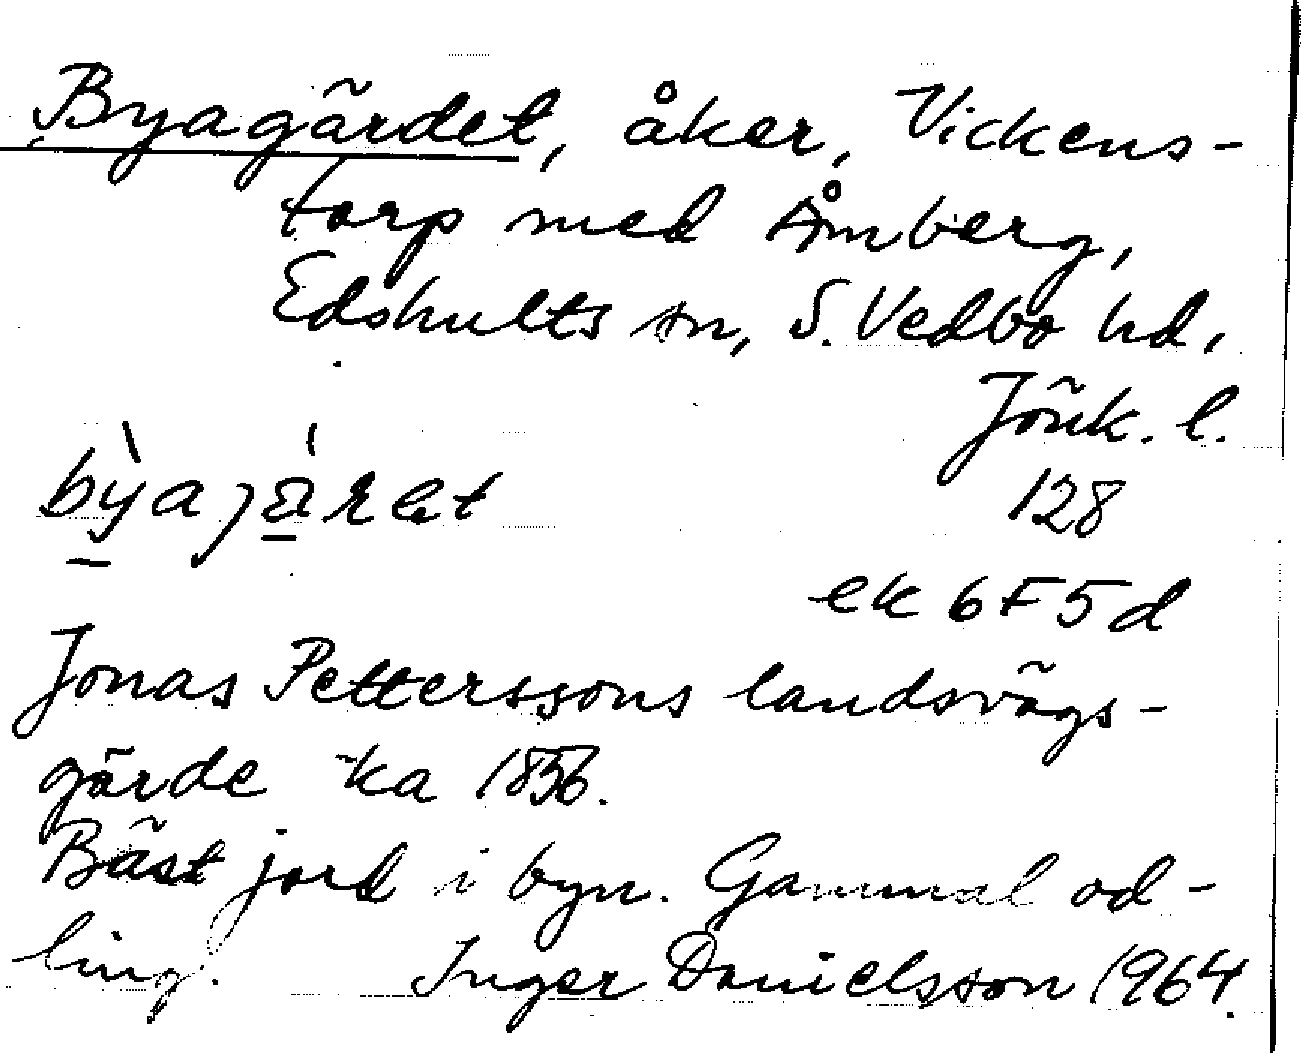 Byagärdet, åker, Vickens-
torp med Åmberg,
Edshults sn, S. Vedbo hd,
Jönk. l.
bỳajàret
128
ek 6F5d
Jonas Petterssons landsvägs-
gärde ka 1856.
Bäst jord i byn. Gammal od-
ling. Inger Danielsson 1964.